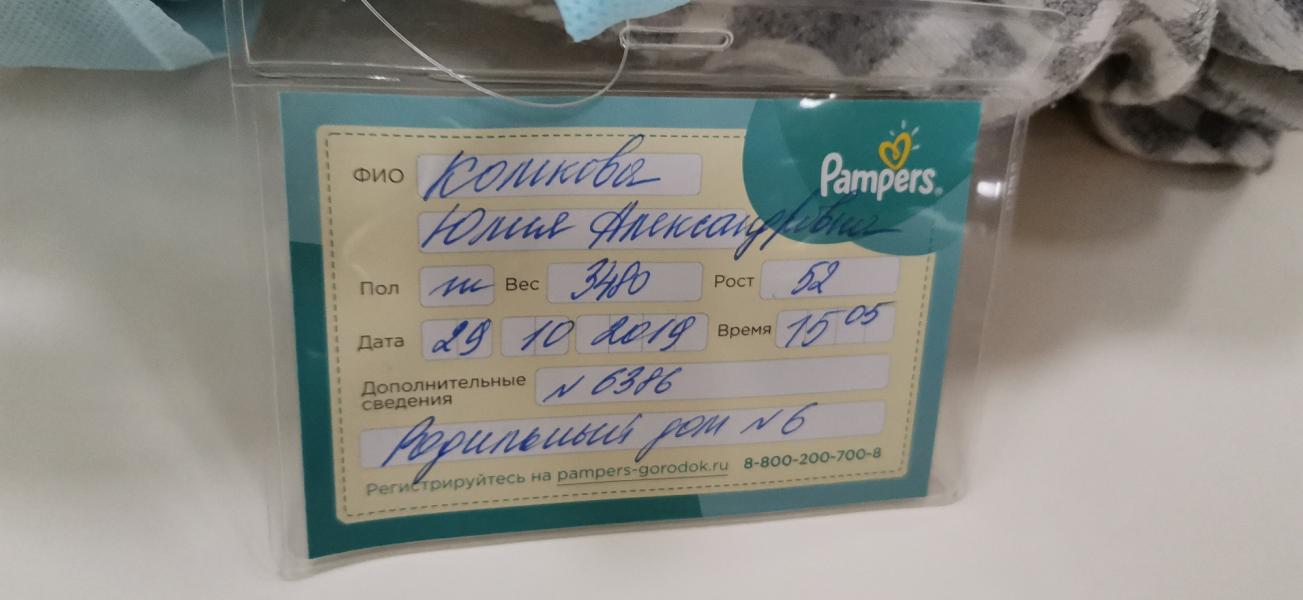 Pampers®
ФИО Колкова
Юлия Александровна
Пол ж Вес 3480 Рост 52
Дата 29 10 2019 Время 15 05
Дополнительные сведения N 6386
Родильный дом N 6
Регистрируйтесь на pampers-gorodok.ru 8-800-200-700-8